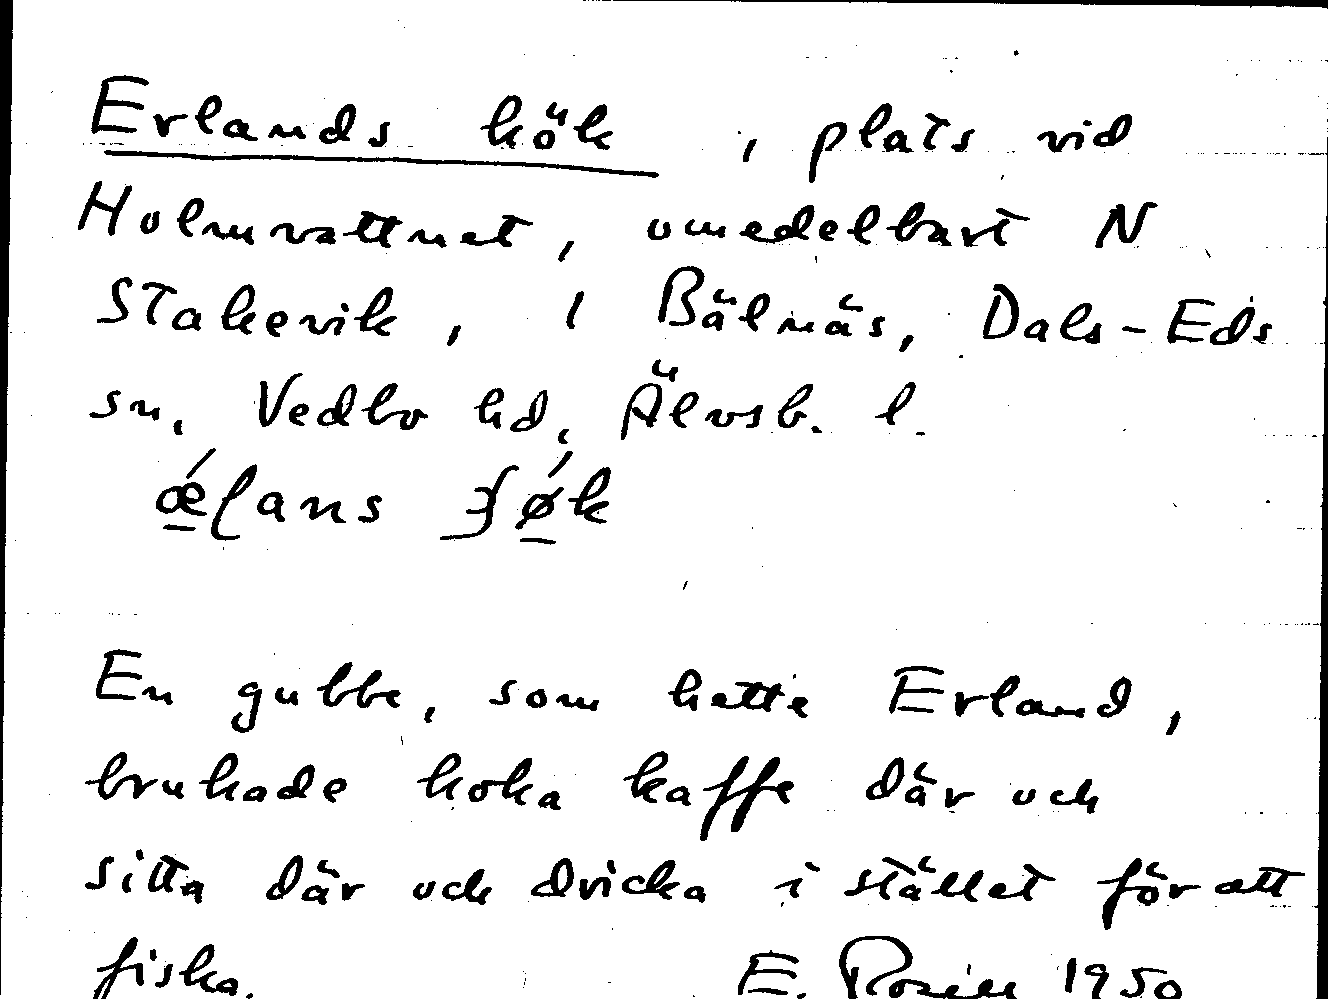 Erlands kök, plats vid
Holmvattnet, omedelbart N
Stakevik, i Bälnäs, Dals-Eds
sn, Vedbo hd, Älvsb. l.
En gubbe, som hette Erland,
brukade koka kaffe där och
sitta där och dricka i stället för att
fiska.
E. Rosell 1950